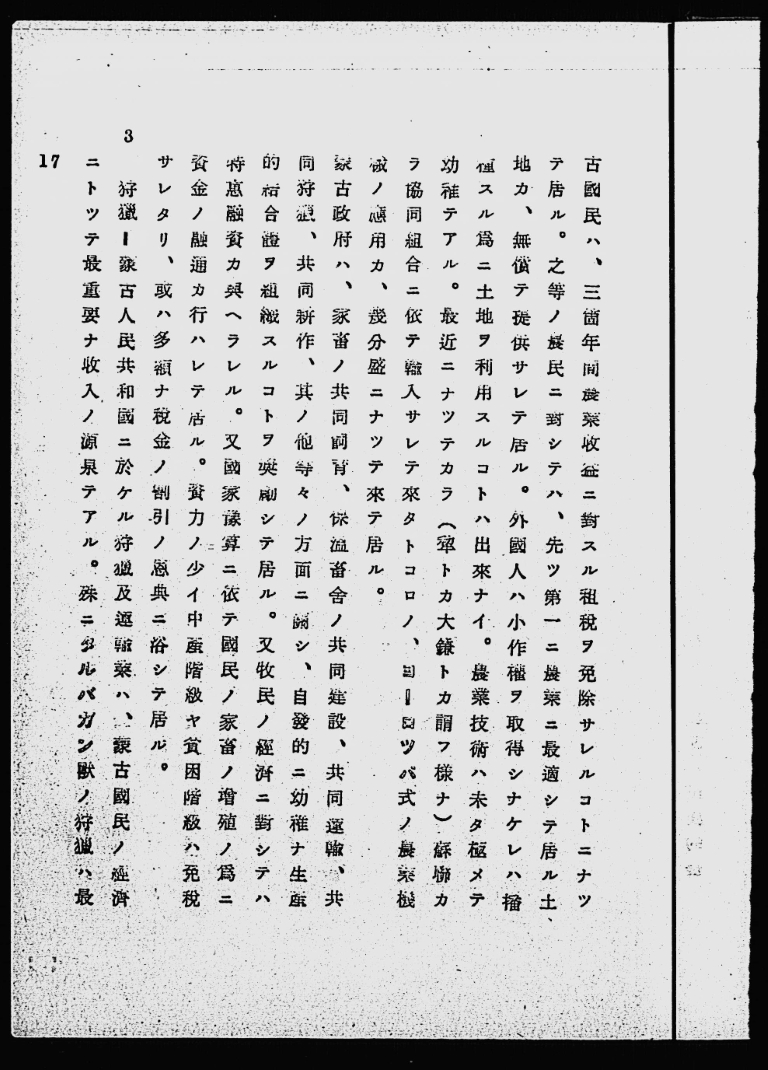 古國民ハ、三箇年間農業收益ニ對スル租税ヲ免除サレルコトニナツ
テ居ル。之等ノ農民ニ對シテハ、先ツ第一ニ農業ニ最適シテ居ル土、
地カ、無償テ提供サレテ居ル。外國人ハ小作權ヲ取得シナケレハ播
種スル爲ニ土地ヲ利用スルコトハ出來ナイ。農業技術ハ未タ極メテ
幼稚テアル。最近ニナツテカラ(犂トカ大鎌トカ謂フ樣ナ)蘇聯カ
ラ協同組合ニ依テ輸入サレテ來タトコロノ、ヨーロツパ式ノ農業機
械ノ應用カ、幾分盛ニナツテ來テ居ル。
蒙古政府ハ、家畜ノ共同飼育、保溫畜舍ノ共同建設、共同運輸、共
同狩獵、共同耕作、其ノ他等々ノ方面ニ關シ、自發的ニ幼稚ナ生産
的結合體ヲ組織スルコトヲ奬勵シテ居ル。又牧民ノ經濟ニ對シテハ
特惠融資カ與ヘラレル。又國家豫算ニ依テ國民ノ家畜ノ增殖ノ爲ニ
資金ノ融通カ行ハレテ居ル。資力ノ少イ中産階級ヤ貧困階級ハ免税
サレタリ、或ハ多額ナ税金ノ割引ノ恩典ニ浴シテ居ル。
3
狩獵ー蒙古人民共和國ニ於ケル狩獵及運輸業ハ、蒙古國民ノ經濟
ニトツテ最重要ナ收入ノ源泉テアル。殊ニタルバガン獸ノ狩獵ハ最
17